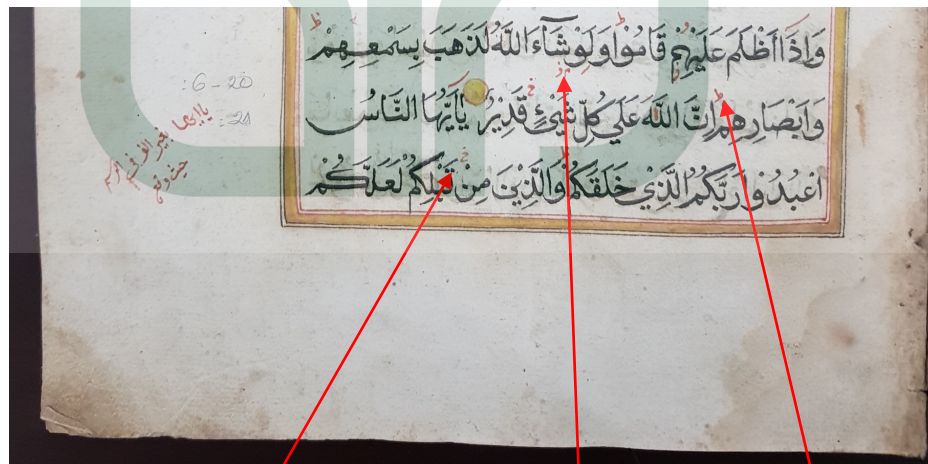 وَاِذَا اَظْلَمَ عَلَيْهِمْ قَامُوْا وَلَوْ شَآءَ اللّٰهُ لَذَهَبَ بِسَمْعِهِمْ
وَاَبْصَارِهِمْ اِنَّ اللّٰهَ عَلٰي كُلِّ شَيْئٍ قَدِيْرٌ يٰاَيُّهَا النَّاسُ
اعْبُدُوْا رَبَّكُمُ الَّذِيْ خَلَقَكُمْ وَالَّذِيْنَ مِنْ قَبْلِكُمْ لَعَلَّكُمْ
:6-20
:21
ياايها بغير الف في الرسم
حيث وقع